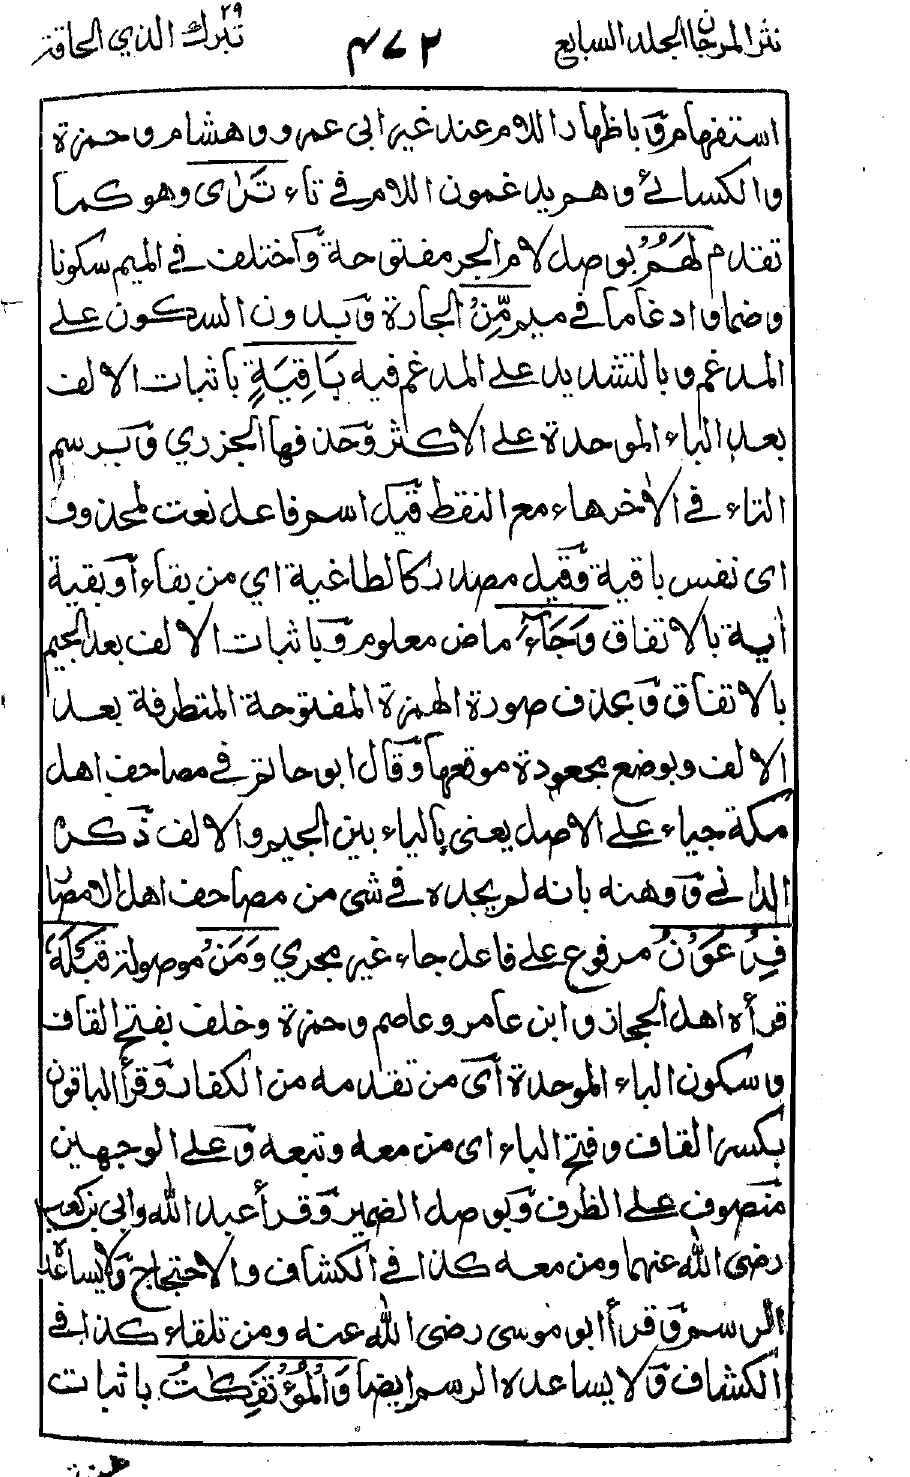 نثر المرجان الجلد السابع
٤٧٢
تبرك الذي ٢٩ الحاقة
استفهام وباظهار اللام عند غير ابى عمرو وهشام وحمزة
والكسائي وهم يدغمون اللام في تاء تَرٰى وهو كما
تقدم لَهُمْ بوصل لام الجر مفتوحة وآختلف في الميم سكونا
وضما وادغاما في ميم مِّنْ الجارة وبدون السكون على
المدغم وبالتشديد على المدغم فيه بَاقِيَةٍ باثبات الالف
بعد الباء الموحدة على الاكثر وحذفها الجزري وبرسم
التاء في الاٰخر هاء مع النقط قيل اسم فاعل نعت لمحذوف
اى نفس باقية وقيل مصدر كالطاغية اي من بقاء أوبقية
اٰية بالاتفاق وَجَآءَ ماض معلوم وباثبات الالف بعد الجيم
بالاتفاق وبحذف صورة الهمزة المفتوحة المتطرفة بعد
الالف وبوضع مجعودة موقعها وقال ابو حاتم في مصاحف اهل
مكة جياء على الاصل يعنى بالياء بين الجيم والالف ذكره
الدانى ووهنه بانه لم يجده في شى من مصاحف اهل الامصار
فِرْعَوْنُ مرفوع على فاعل جاء غير مجري وَمَنْ موصولة قَبْلَهُ
قرأه اهل الحجاز وابن عامر وعاصم وحمزة وخلف بفتح القاف
وسكون الباء الموحدة أى من تقدمه من الكفار وقرأ الباقون
بكسر القاف وفتح الباء اى من معه وتبعه وعلى الوجهين
منصوف على الظرف وبوصل الضمير وقرأ عبد الله وابى بن كعب
رضى الله عنهما ومن معه كذا في الكشاف والاحتجاج ولايساعده
الرسم وقرأ ابو موسى رضى الله عنه ومن تلقاء كذا في
الكشاف ولا يساعده الرسم ايضا وَالْمُؤْتَفِكٰتُ باثبات
همزة